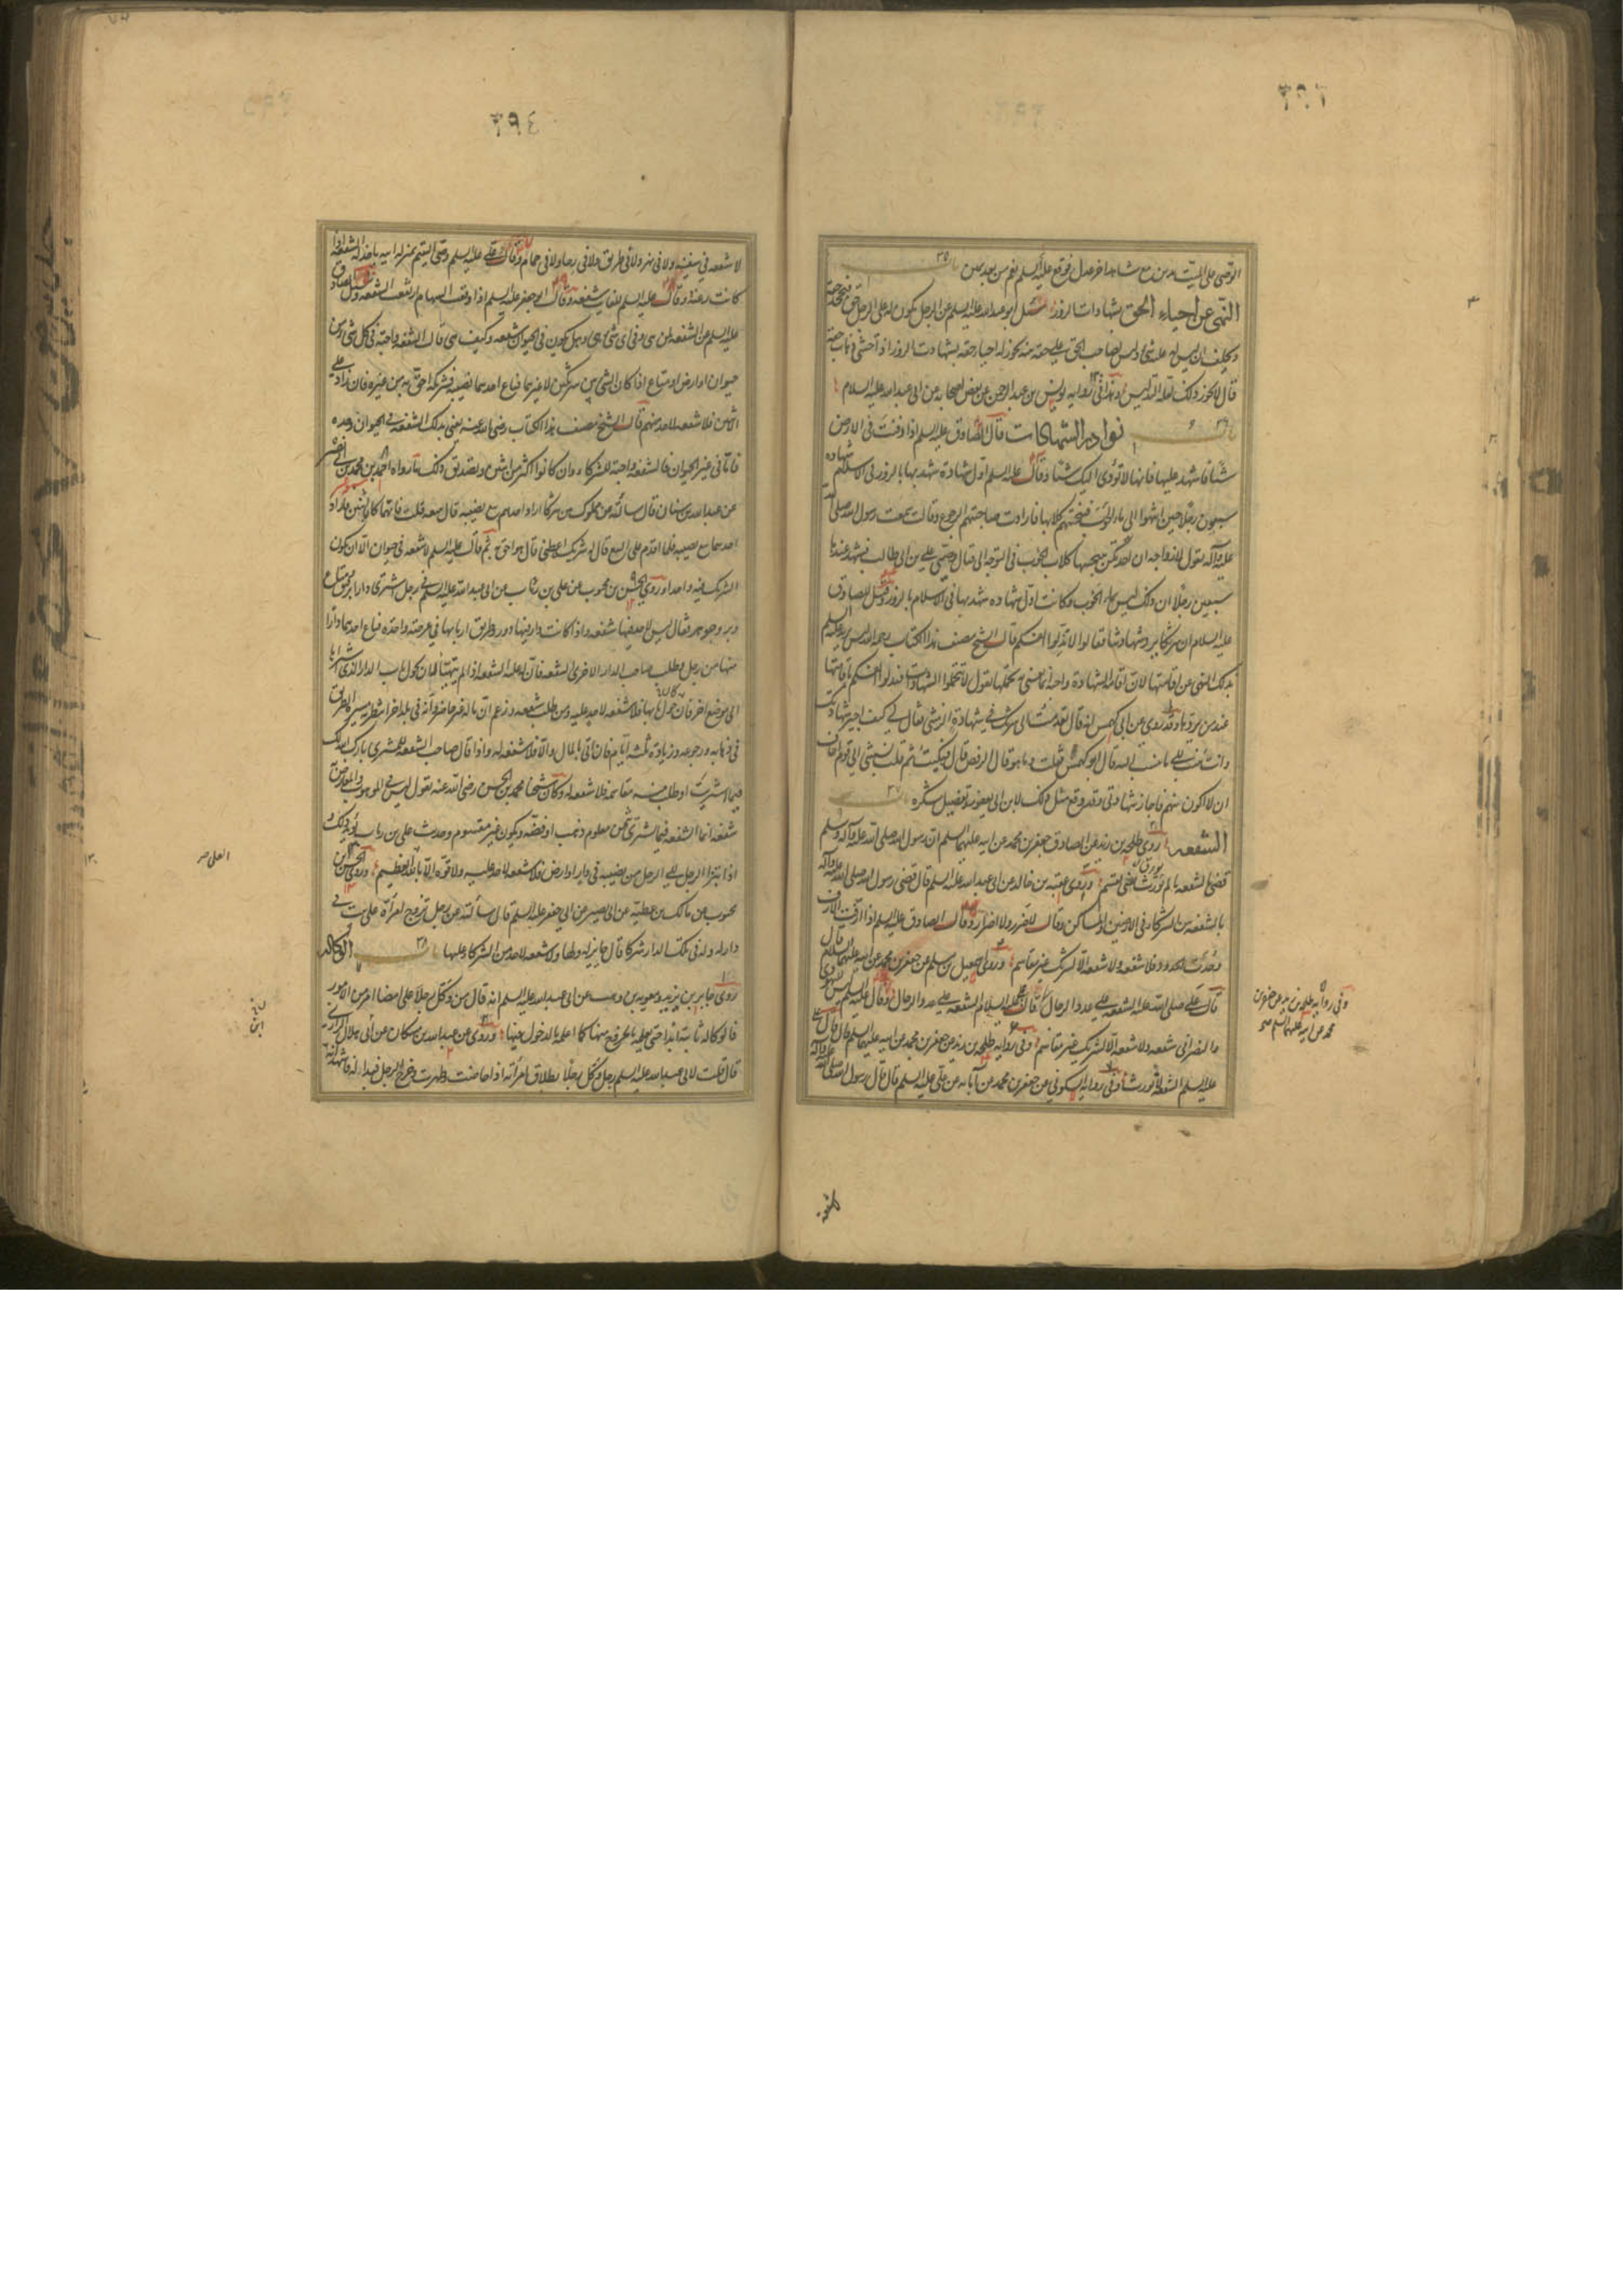 ٣٩٣
الوصی علی المیت بدین مع شاهد اخر عدل فوقع علیه السلم نعم من بعد یمین باب ٣٥
النهی عن احیاء الحق بشهادات الزور سئل ابو عبدالله علیه السلم عن الرجل یکون له علی الرجل حق فیجحد حقه
ویحلف ان لیس له علیه شئ ولیس لصاحب الحق علی حقه بینة یجوز له احیاء حقه بشهادات الزور اذا خشی ذهاب حقه
قال لا یجوز ذلک لعلة التدلیس وهذا فی روایة یونس بن عبد الرحمن عن بعض اصحابه عن ابی عبدالله علیه السلام
باب ٣٦ نوادر الشهادات قال الصادق علیه السلم اذا دفنت فی الارض
شیئا فاشهد علیها فانها لا تؤدی الیک شیئا وقال علیه السلم اول شهادة شهد بها بالزور فی الاسلام شهادة
سبعین رجلا حین انتهوا الی ماء الحوئب فنبحتهم کلابها فارادت صاحبتهم الرجوع وقالت سمعت رسول الله صلی الله
علیه وآله یقول لازواجه ان احدیکن تنبحها کلاب الحوئب فی التوجه الی قتال وصیی علی بن ابی طالب فشهد عندها
سبعین رجلا ان ذلک لیس بماء الحوئب وکانت اول شهادة شهد بها فی الاسلام بالزور وقیل للصادق
علیه السلام ان شرکا یرد شهادتنا فقال لا تذلوا انفسکم قال الشیخ مصنف هذا الکتاب رحمه الله لیس یرید علیه السلم
بذلک النهی عن اقامتها لان اقامة الشهادة واجبة انما یعنی تحملها یقول لا تتحملوا الشهادات فتذلوا انفسکم باقامتها
عند من یردها وقد روی عن ابی کهمس انه قال تقدمت الی شریک فی شهادة لزمتنی فقال لی کیف اجیز شهادتک
وانت تنسب الی ما تنسب الیه قال ابو کهمس فقلت وما هو قال الرفض قال فبکیت ثم قلت نسبتنی الی قوم اخاف
ان لا اکون منهم فاجاز شهادتی وقد وقع مثل ذلک لابن ابی یعفور ولفضیل سکرة باب ٣٧
الشفعة روی طلحة بن زید عن الصادق جعفر بن محمد عن ابیه علیهما السلم ان رسول الله صلی الله علیه وآله وسلم
قضی بالشفعة ما لم تورف یعنی تقسم وروی عقبة بن خالد عن ابی عبدالله علیه السلم قال قضی رسول الله صلی الله علیه وآله
بالشفعة بین الشرکاء فی الارضین والمساکن وقال لا ضرر ولا اضرار وقال الصادق علیه السلم اذا ارفت الارف
وحدت الحدود فلا شفعة ولا شفعة الا لشریک غیر مقاسم وروی اسمعیل بن مسلم عن جعفر بن محمد عن ابیه علیهما السلام قال
قال علی صلی الله علیه الشفعة علی عدد الرجال قال علیه السلام الشفعة علی عدد الرجال وقال علیه السلم لیس للیهودی
والنصرانی شفعة ولا شفعة الا لشریک غیر مقاسم وفی روایة طلحة بن زید عن جعفر بن محمد عن ابیه علیهما السلم قال قال علی
علیه السلم الشفعة لا تورث وفی روایة السکونی عن جعفر بن محمد عن آبائه عن علی علیه السلم قال قال رسول الله صلی الله علیه وآله
وفی روایة طلحة بن زید عن جعفر بن
محمد عن ابیه علیهما السلم صح
لا شفعة
٣٩٤
لا شفعة فی سفینة ولا فی نهر ولا فی طریق ولا فی رحا ولا فی حمام وقال علی علیه السلم وصی الیتیم بمنزلة ابیه یاخذ له الشفعة اذا
کانت رغبة وقال علیه السلم للغائب شفعة وقال ابو جعفر علیه السلم اذا وقعت السهام ارتفعت الشفعة وسئل الصادق
علیه السلم عن الشفعة لمن هی وفی ای شئ هی وهل یکون فی الحیوان شفعة وکیف هی قال الشفعة واجبة فی کل شئ من
حیوان او ارض او متاع اذا کان الشئ بین شریکین لا غیرهما فباع احدهما نصیبه فشریکه احق به من غیره فان زاد علی
الاثنین فلا شفعة لاحد منهم قال الشیخ مصنف هذا الکتاب رضی الله عنه یعنی بذلک الشفعة فی الحیوان وحده
فاما فی غیر الحیوان فالشفعة واجبة للشرکاء وان کانوا اکثر من اثنین وتصدیق ذلک ما رواه احمد بن محمد بن ابی نصر
عن عبدالله بن سنان قال سالته عن مملوک بین شرکاء اراد احدهم بیع نصیبه قال یبیعه قلت فانهما کانا اثنین فاراد
احدهما بیع نصیبه فلما اقدم علی البیع قال له شریکه اعطنی قال هو احق به ثم قال علیه السلم لا شفعة فی حیوان الا ان یکون
الشریک فیه واحدا وروی الحسن بن محبوب عن علی بن رئاب عن ابی عبدالله علیه السلم فی رجل اشتری دارا برقیق ومتاع
وبز وجوهر فقال لیس لاحد فیها شفعة واذا کانت دار فیها دور وطریق اربابها فی عرصة واحدة فباع احدهما دارا
منها من رجل وطلب صاحب الدار الاخری الشفعة فان له علیه الشفعة اذا لم یتهیأ له ان یحول باب الدار الذی اشتراها
الی موضع اخر فان حول بابها فلا شفعة لاحد علیه ومن طلب شفعة وزعم ان ماله غیر حاضر وانه فی بلد اخر انتظر به مسیر الطریق
فی ذهابه ورجوعه وزیادة ثلثة ایام فان اتی بالمال والا فلا شفعة له واذا قال صاحب الشفعة للمشتری بارک الله لک
فیما اشتریت او طلب منه مقاسمة فلا شفعة له وکان شیخنا محمد بن الحسن رضی الله عنه یقول لیس فی الموهوب والمعاوض به
شفعة انما الشفعة فیما اشتری بثمن معلوم ذهب او فضة ویکون غیر مقسوم وحدیث علی بن رئاب یؤید ذلک و
اذا تبرأ الرجل الی الرجل من نصیبه فی دار او ارض فلا شفعة لاحد علیه ولا قوة الا بالله العظیم وروی الحسن بن
محبوب عن مالک بن عطیة عن ابی بصیر عن ابی جعفر علیه السلم قال سالته عن رجل تزوج امرأة علی بیت فی
دار له وله فی تلک الدار شرکاء قال جایز له ولها ولا شفعة لاحد من الشرکاء علیها باب ٣٨ الوکالة
روی جابر بن یزید ومعویة بن وهب عن ابی عبدالله علیه السلم انه قال من وکل رجلا علی امضاء امر من الامور
فالوکالة ثابتة ابدا حتی یعلمه بالخروج منها کما اعلمه بالدخول فیها وروی عن عبدالله بن مسکان عن ابی هلال الرازی
قال قلت لابی عبدالله علیه السلم رجل وکل رجلا بطلاق امرأته اذا حاضت وطهرت وخرج الرجل فبدا له فاشهد انه